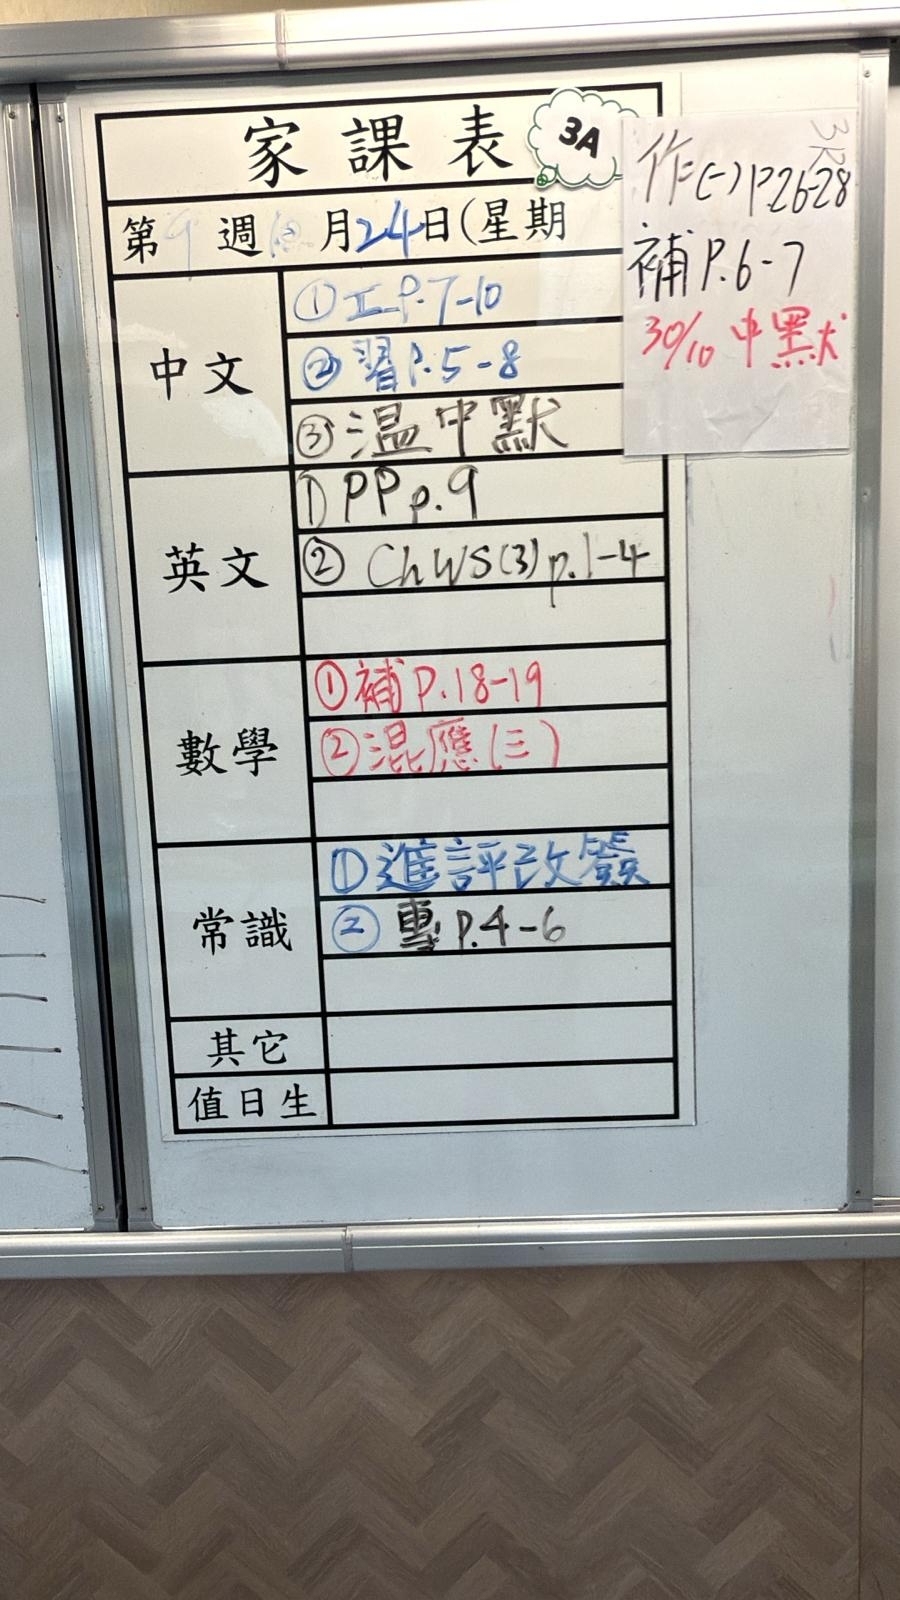 家課表
3A
第9週10月24日(星期
中文
①工P.7-10
②習P.5-8
③温中默
英文
①PP p.9
②Ch WS(3)p.1-4
數學
①補P.18-19
②混應(三)
常識
①進評改簽
②專P.4-6
其它
值日生
作(一)P.26-28
補P.6-7
30/10 中默